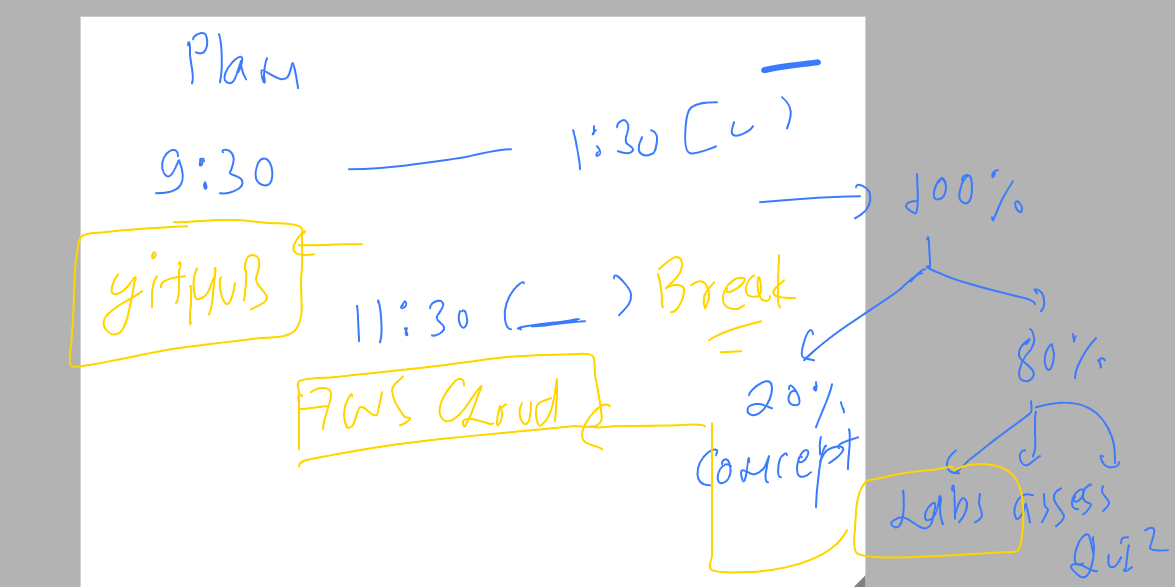 Plan
9:30 — 1:30 [ )
100%
gitHuB
11:30 ( ) Break
80%
20%
AWS Cloud
Concept
Labs assess
Quiz